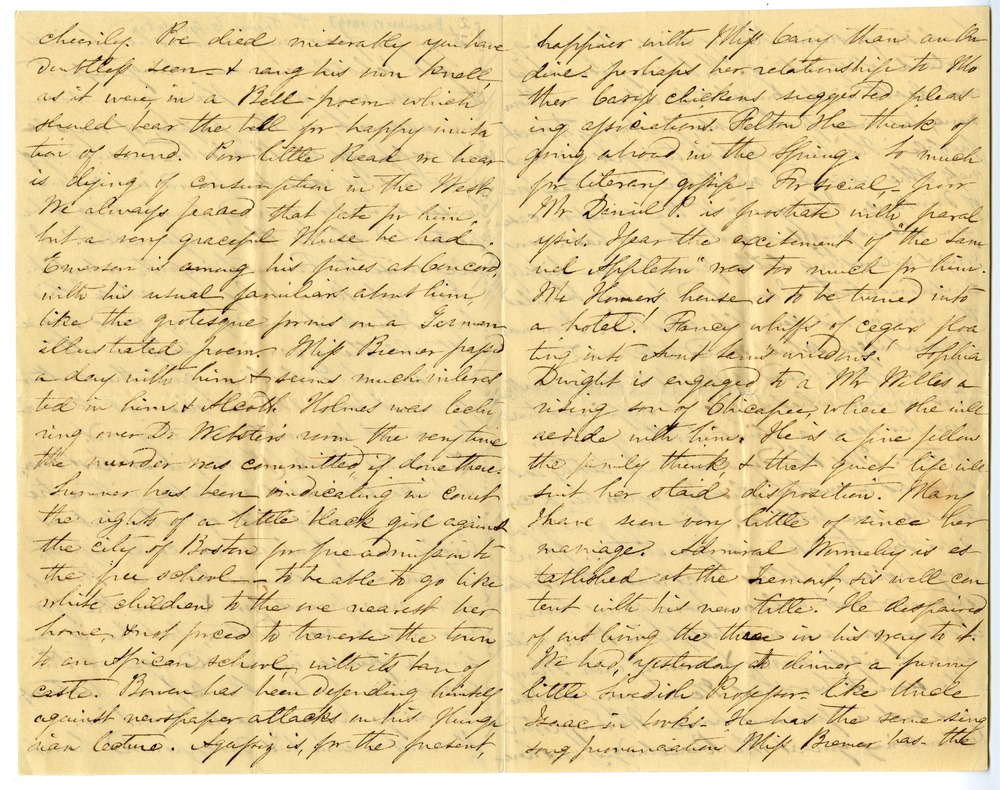 cheerily. Poe died miserably you have
doubtless seen & rang his own knell,
as it were, in a Bell-poem which
should bear the bell for happy imita
tion of sound. Poor little Read we hear
is dying of consumption in the West.
We always feared that fate for him,
but a very graceful Muse he had.
Emerson is among his pines at Concord,
with his usual familiars about him
like the grotesque forms on a German
illustrated poem. Miss Bremer passed
a day with him & seems much interes
ted in him & Alcott. Holmes was lectu
ring over Dr Webster's room the very time
the murder was committed, if done there.
Sumner has been vindicating in court
the rights of a little black girl against
the city of Boston for free admission to
the free school – to be able to go like
white children to the one nearest her
home, & not forced to traverse the town
to an African school, with its ban of
caste. Bowen has been defending himself
against newspaper attacks on his Hunga
rian lecture. Agassiz is, for the present,
happier with Miss Cary than an On
dine – perhaps her relationship to Mo
ther Cary's chickens suggested pleas
ing associations. Felton the thinks of
going abroad in the Spring. So much
for literary gossip – For social, – poor
Mr Daniel P. is prostrate with paral
ysis. I fear the excitement of "the Sam
uel Appleton" was too much for him.
Mr Homer's house is to be turned into
a hotel! Fancy whiffs of cegars floa
ting into Aunt Sam's windows! Sophia
Dwight is engaged to a Mr Wells a
rising son of Chicapee, where she will
reside with him. He is a fine fellow
the family think & that quiet life will
suit her staid disposition. Mary
I have seen very little of since her
marriage. Admiral Wormeley is es
tablished at the Tremont, & is well con
tent with his new title. He despaired
of out living the three in his way to it.
We had, yesterday to dinner a funny
little Swedish Professor – like Uncle
Isaac in looks. He has the same sing
song pronunciation Miss Bremer has – the